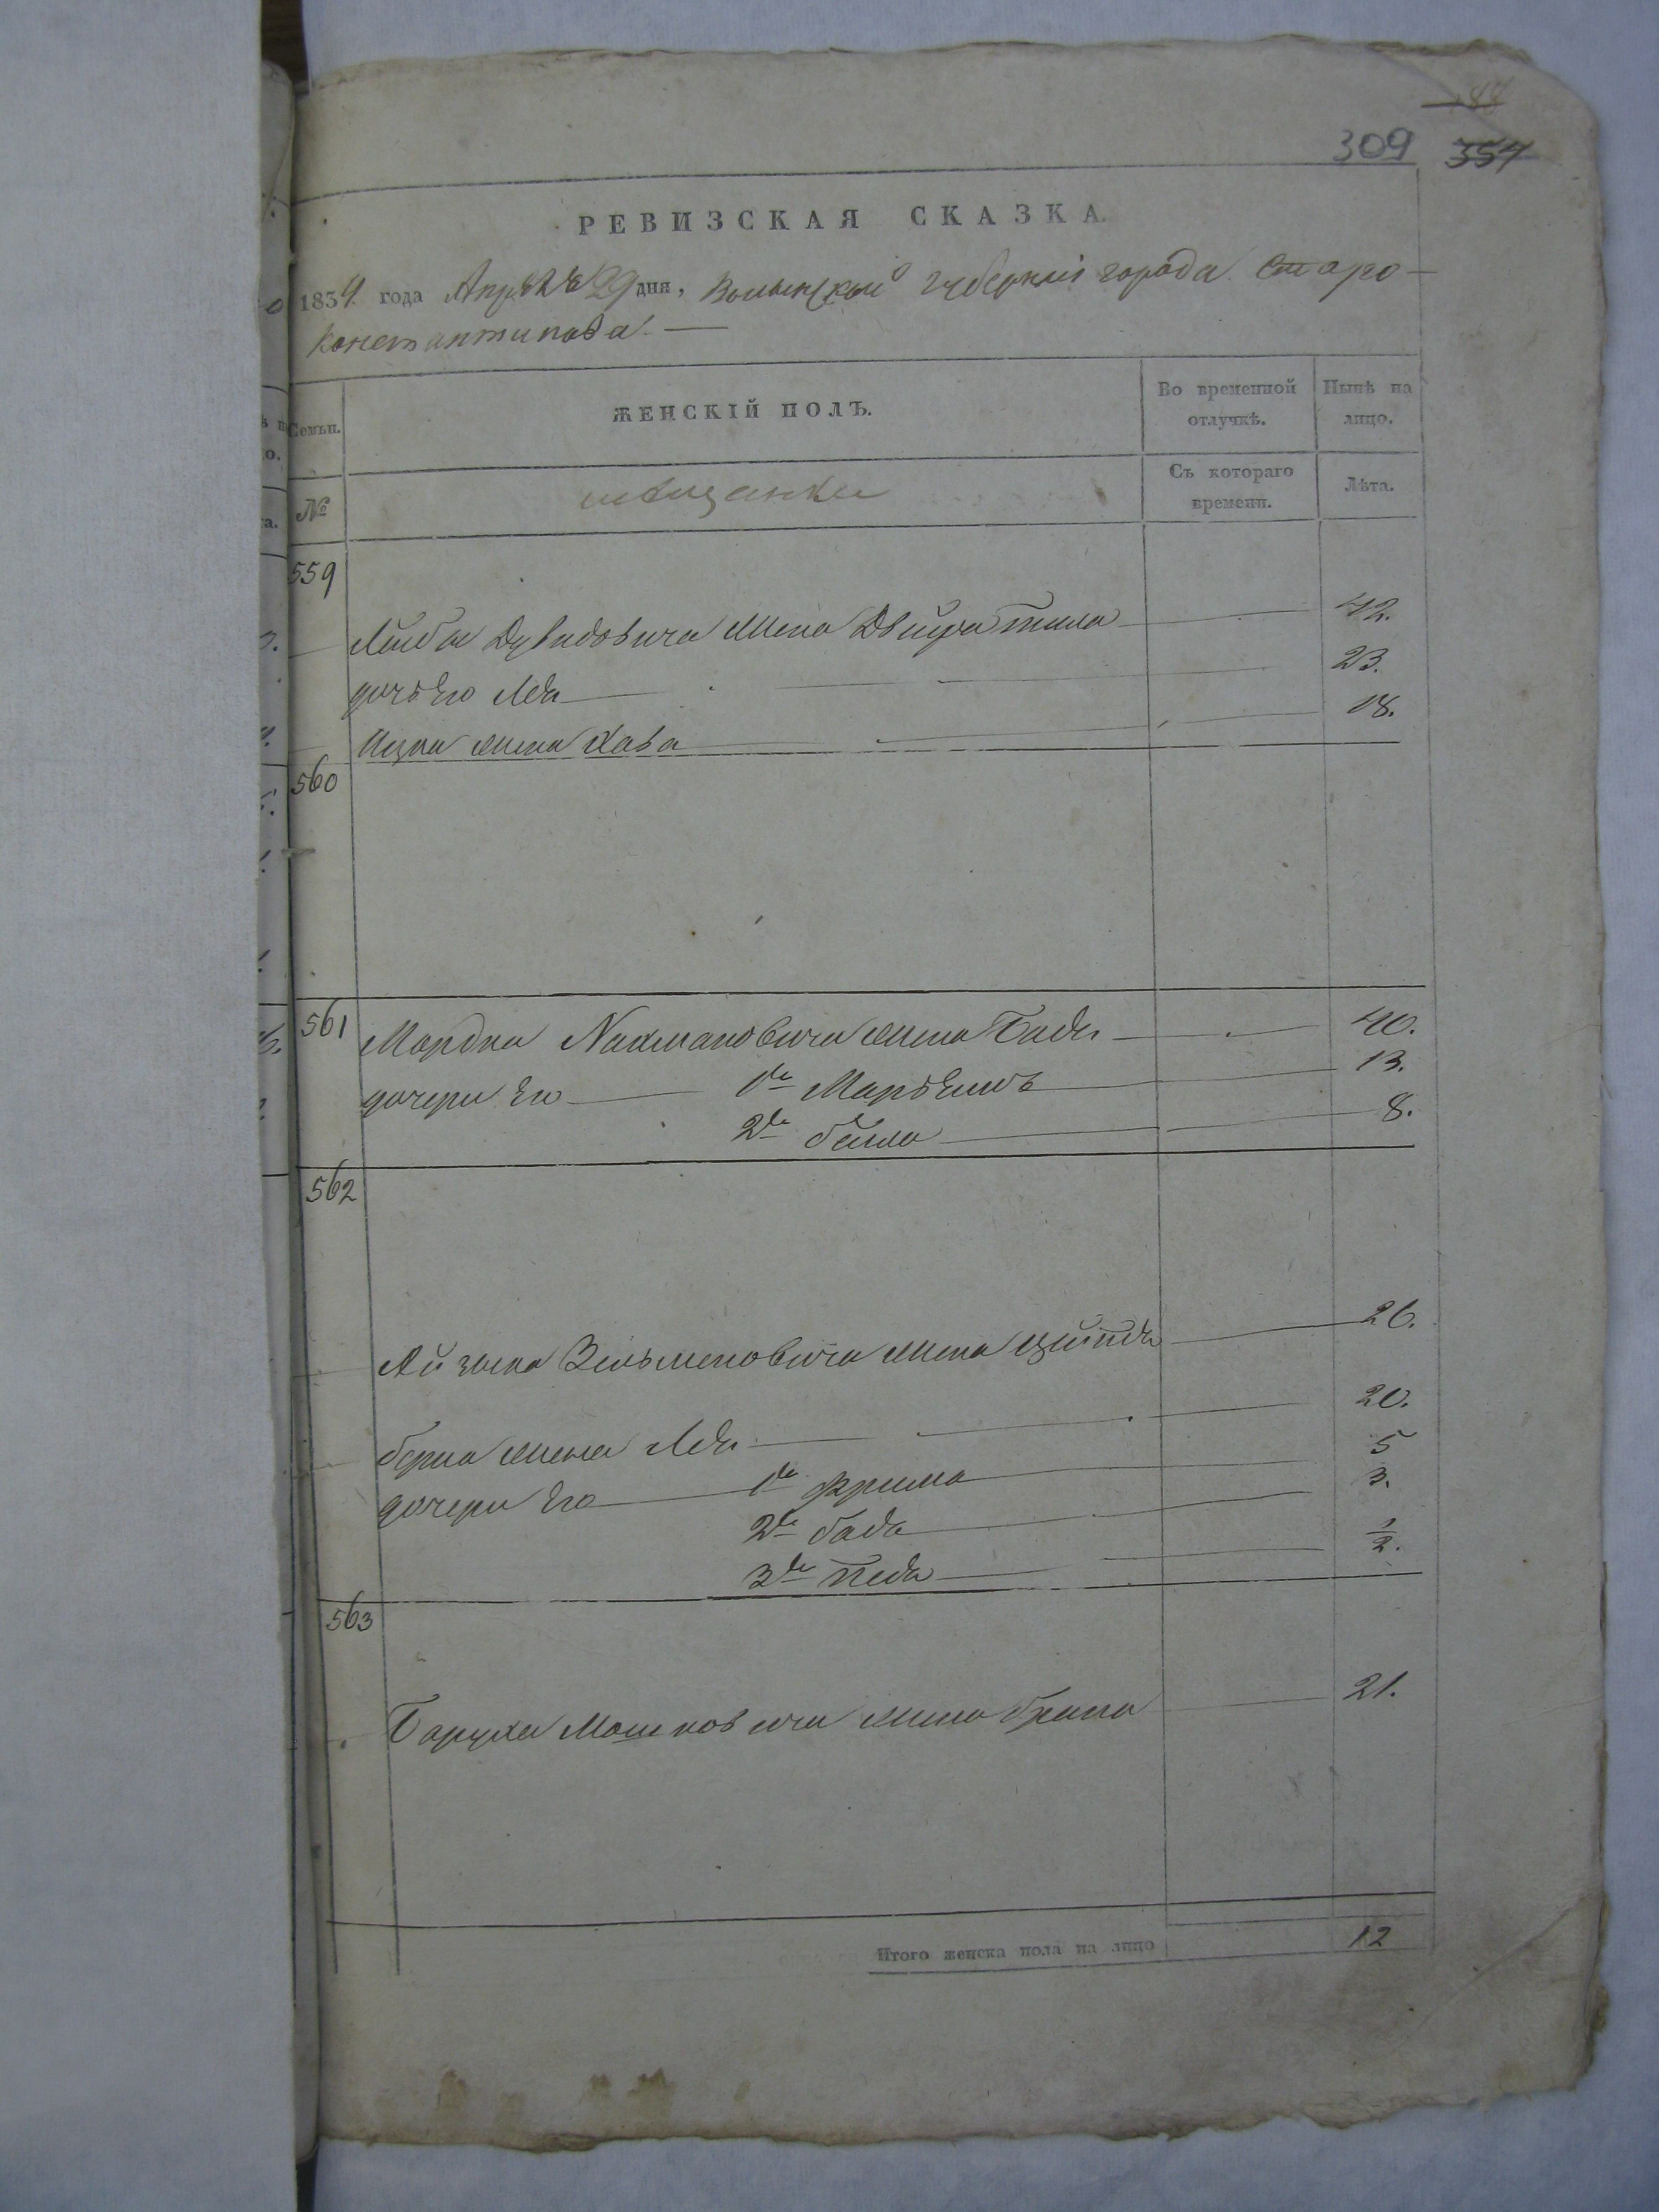 309 354
РЕВИЗСКАЯ СКАЗКА.
1834 года Апреля 29 дня, Волынской Губернии города Старо-
константинова.
Семьи. ЖЕНСКІЙ ПОЛЪ. Во временной отлучкѣ. Нынѣ на лицо.
№ мещанки Съ котораго времени. Лѣта.
559
Лейбы Дувидовича жена Двойра 42.
дочь Его Лея 23.
Ицка жена Хава 18.
560
561 Мордка Нахмановича жена 40.
дочери Его 1я Марьемъ 13.
2я бейла 8.
562
Айзика Зельмановича жена 26.
берка жена Лея 20.
дочери Его 1я фрима 5
2я 3.
3я 1/2.
563
Баруха Мошковича жена 21.
Итого женска пола на лицо 12